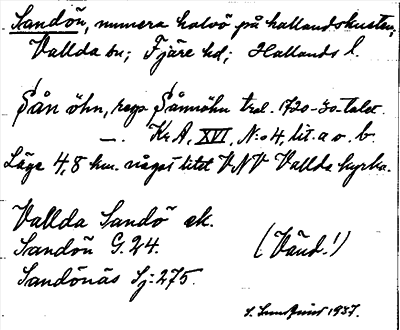 Sandön, numera halvö på hallandskusten;
Vallda sn; Fjäre hd; Hallands l.
Sån öhn, resp. Sånnöhn trol. 1720-30-talet.
—. Kr.A, XVI, No 4, lit. a o. b.
Läge 4,8 km. något litet VNV Vallda kyrka.
Vallda Sandö ek.
Sandön G. 24.
(Vänd!)
Sandönäs Sj: 275.
1937.